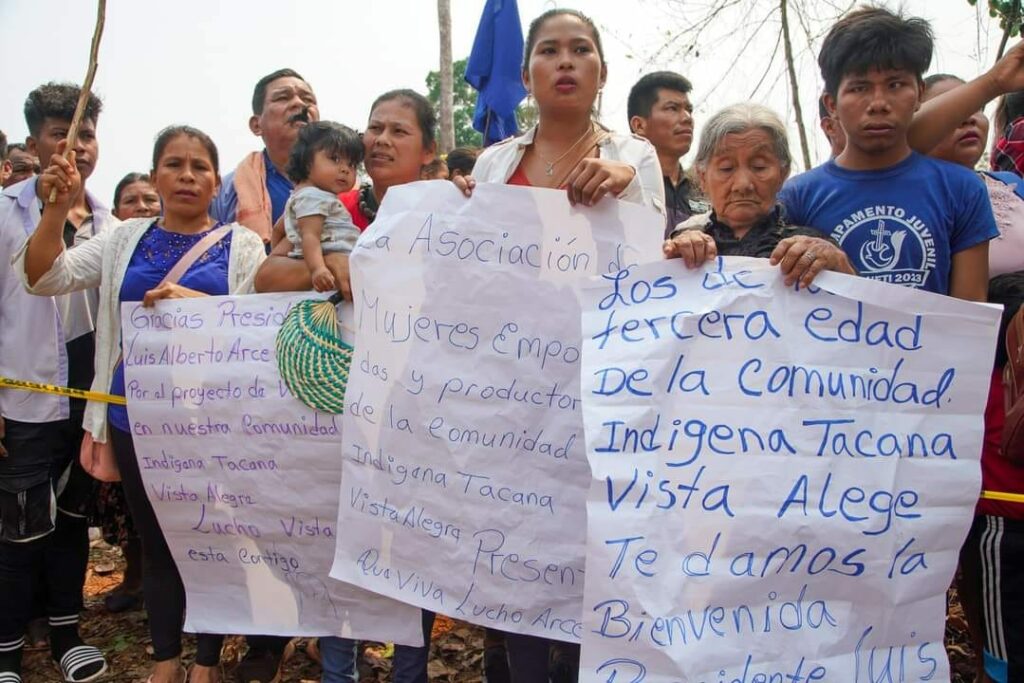 Gracias Presid
Luis Alberto Arce
Por el proyecto de
en nuestra Comunidad
Indígena Tacana
Vista Alegre
Lucho Vista
esta Contigo
La Asociación de
Mujeres Empo
das y productor
de la Comunidad
Indígena Tacana
Vista Alegre
Presen-
Que Viva Lucho Arce
Los de
tercera edad
De la Comunidad.
Indigena Tacana
Vista Alege
Te damos la
Bienvenida
Presidente Luis
CAMPAMENTO JUVENIL
2023